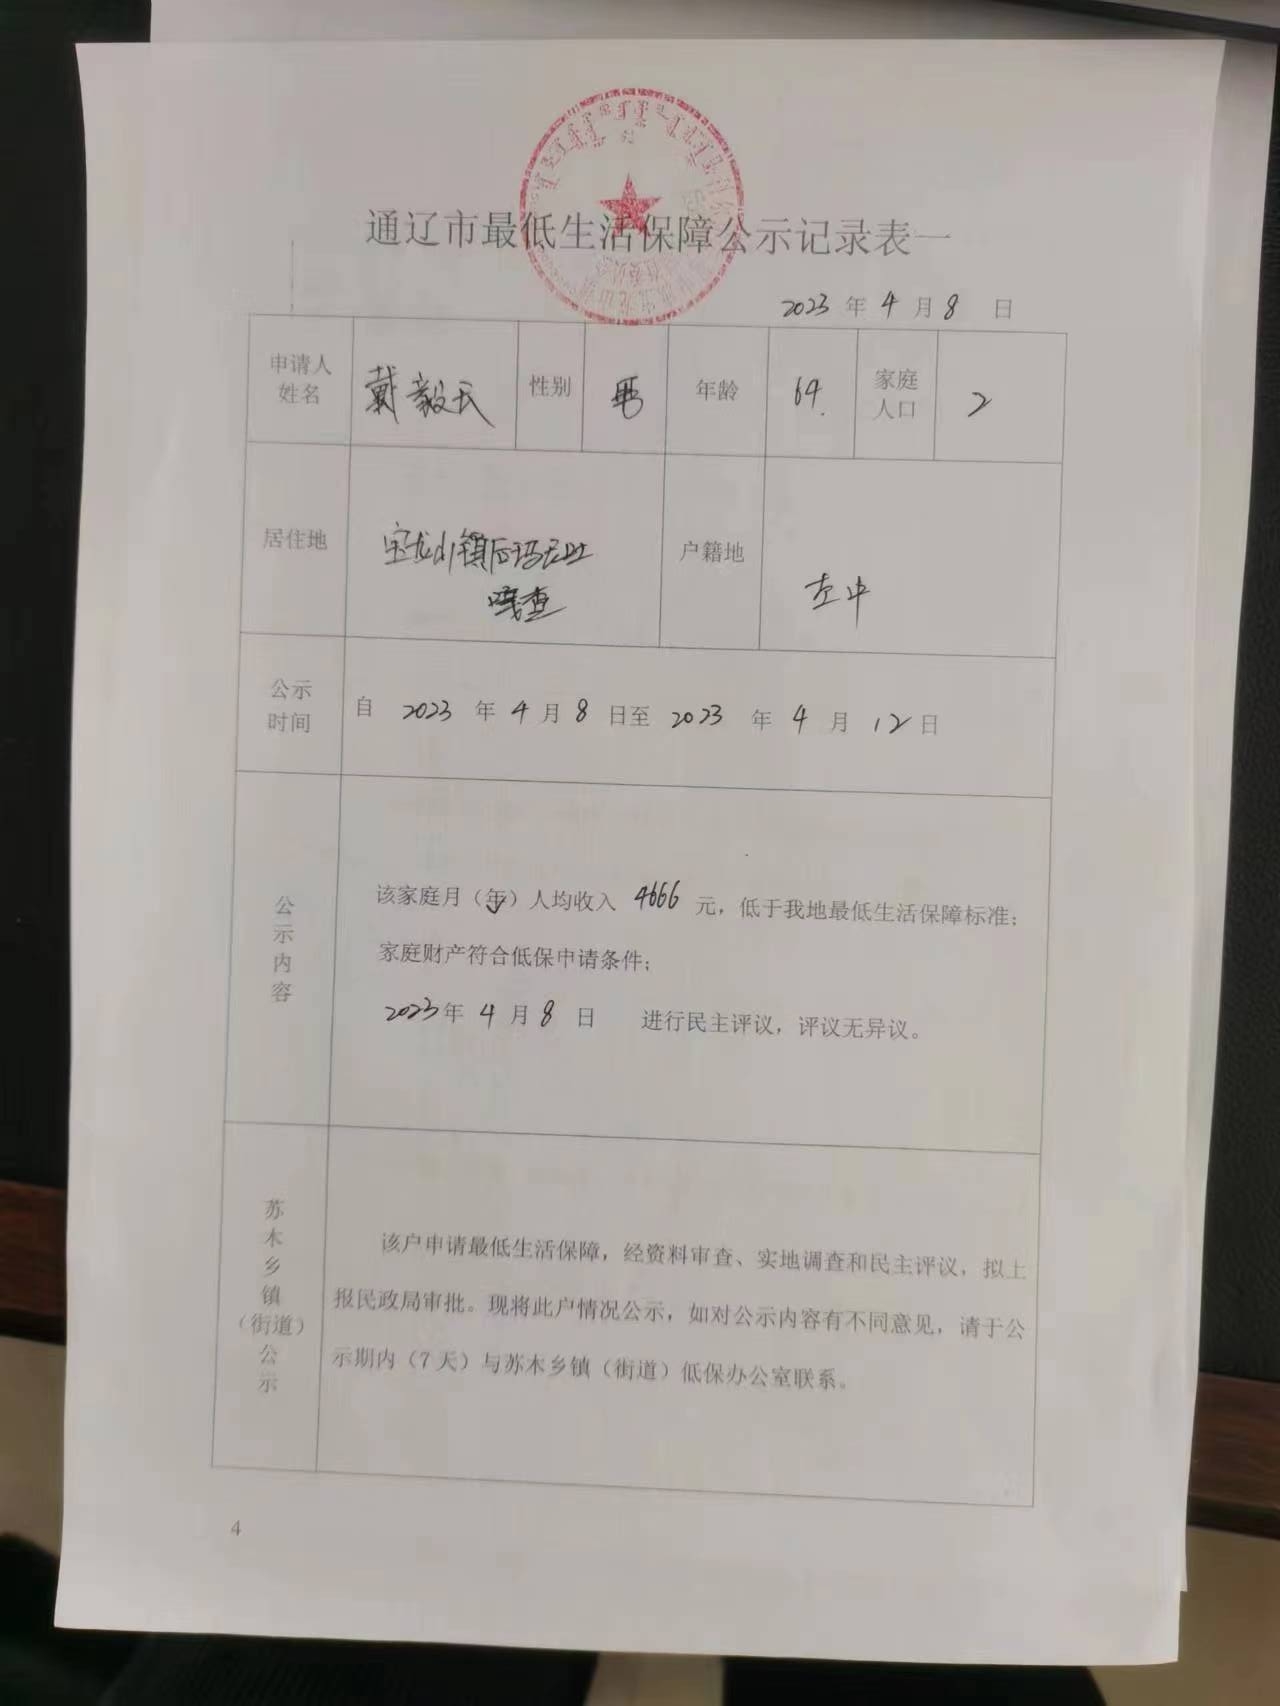 通辽市最低生活保障公示记录表一
2023 年 4 月 8 日
申请人姓名 戴毅天 性别 男 年龄 64 家庭人口 2
居住地 宝龙山镇后玛尼吐 户籍地 左中
嘎查
公示时间 自 2023 年 4 月 8 日至 2023 年 4 月 12 日
公示内容
该家庭月（年）人均收入 4666 元，低于我地最低生活保障标准；
家庭财产符合低保申请条件；
2023年 4 月 8 日 进行民主评议，评议无异议。
苏木乡镇（街道）公示
该户申请最低生活保障，经资料审查、实地调查和民主评议，拟上
报民政局审批。现将此户情况公示，如对公示内容有不同意见，请于公
示期内（7天）与苏木乡镇（街道）低保办公室联系。
4